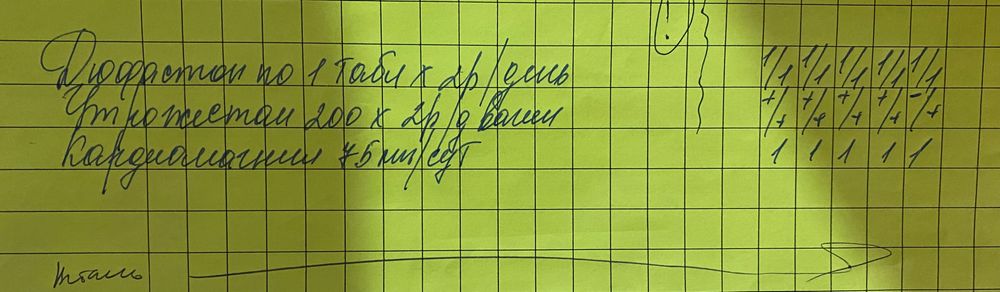 !
Дюфастон по 1 табл х 2р/день 1/1 1/1 1/1 1/1 1/1
Утрожестан 200 х 2р/д вагин +/+ +/+ +/+ +/+ -/+
Кардиомагнил 75 мг/сут 1 1 1 1 1